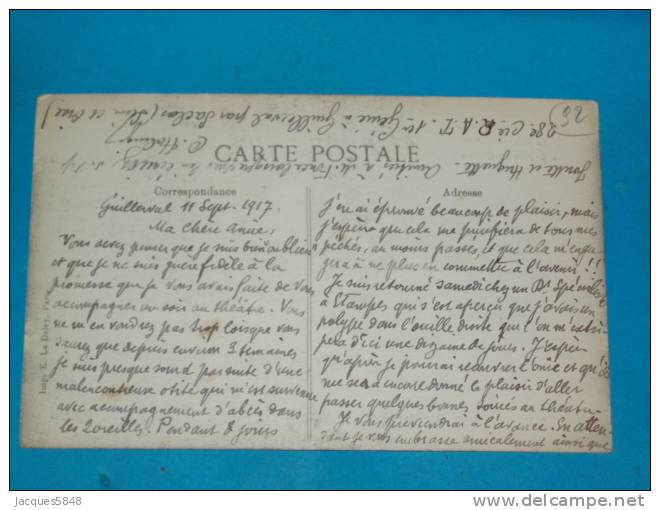 CARTE POSTALE
Correspondance
Adresse
Guillerval 11 Sept. 1917.
Ma Chère Annie,
Vous devez penser que je suis bien oublieux
et que je ne suis guère fidèle à la
promesse que je vous avais faite de vous
accompagner un soir au théâtre. Vous
ne m'en voudrez pas trop lorsque vous
saurez que depuis environ 3 semaines
je suis presque sourd par suite d'une
malencontreuse otite qui m'est survenue
avec accompagnement d'abcès dans
les 2 oreilles. Pendant 8 jours
j'en ai éprouvé beaucoup de plaisir, mais
j'espère que cela me purifiera de tous mes
péchés, au moins passés, et que cela m'enga-
gera à ne plus en commettre à l'avenir !!
Je suis retourné samedi chez un Dr Spécialiste
à Etampes qui s'est aperçu que j'avais un
polype dans l'oreille droite que l'on m'extir
pera d'ici une dizaine de jours. J'espère
qu'après je pourrai recouvrer l'ouïe et qu'il
me sera encore donné le plaisir d'aller
passer quelques bonnes soirées au théâtre.
Je vous préviendrai à l'avance. En atten-
dant je vous embrasse amicalement ainsi que
28e Cie R.A.T. 1er Génie à Guillerval par Saclas (Seine et Oise)
Imp. E. Le Deley, Paris
Jacques5848
www.delcampe.net